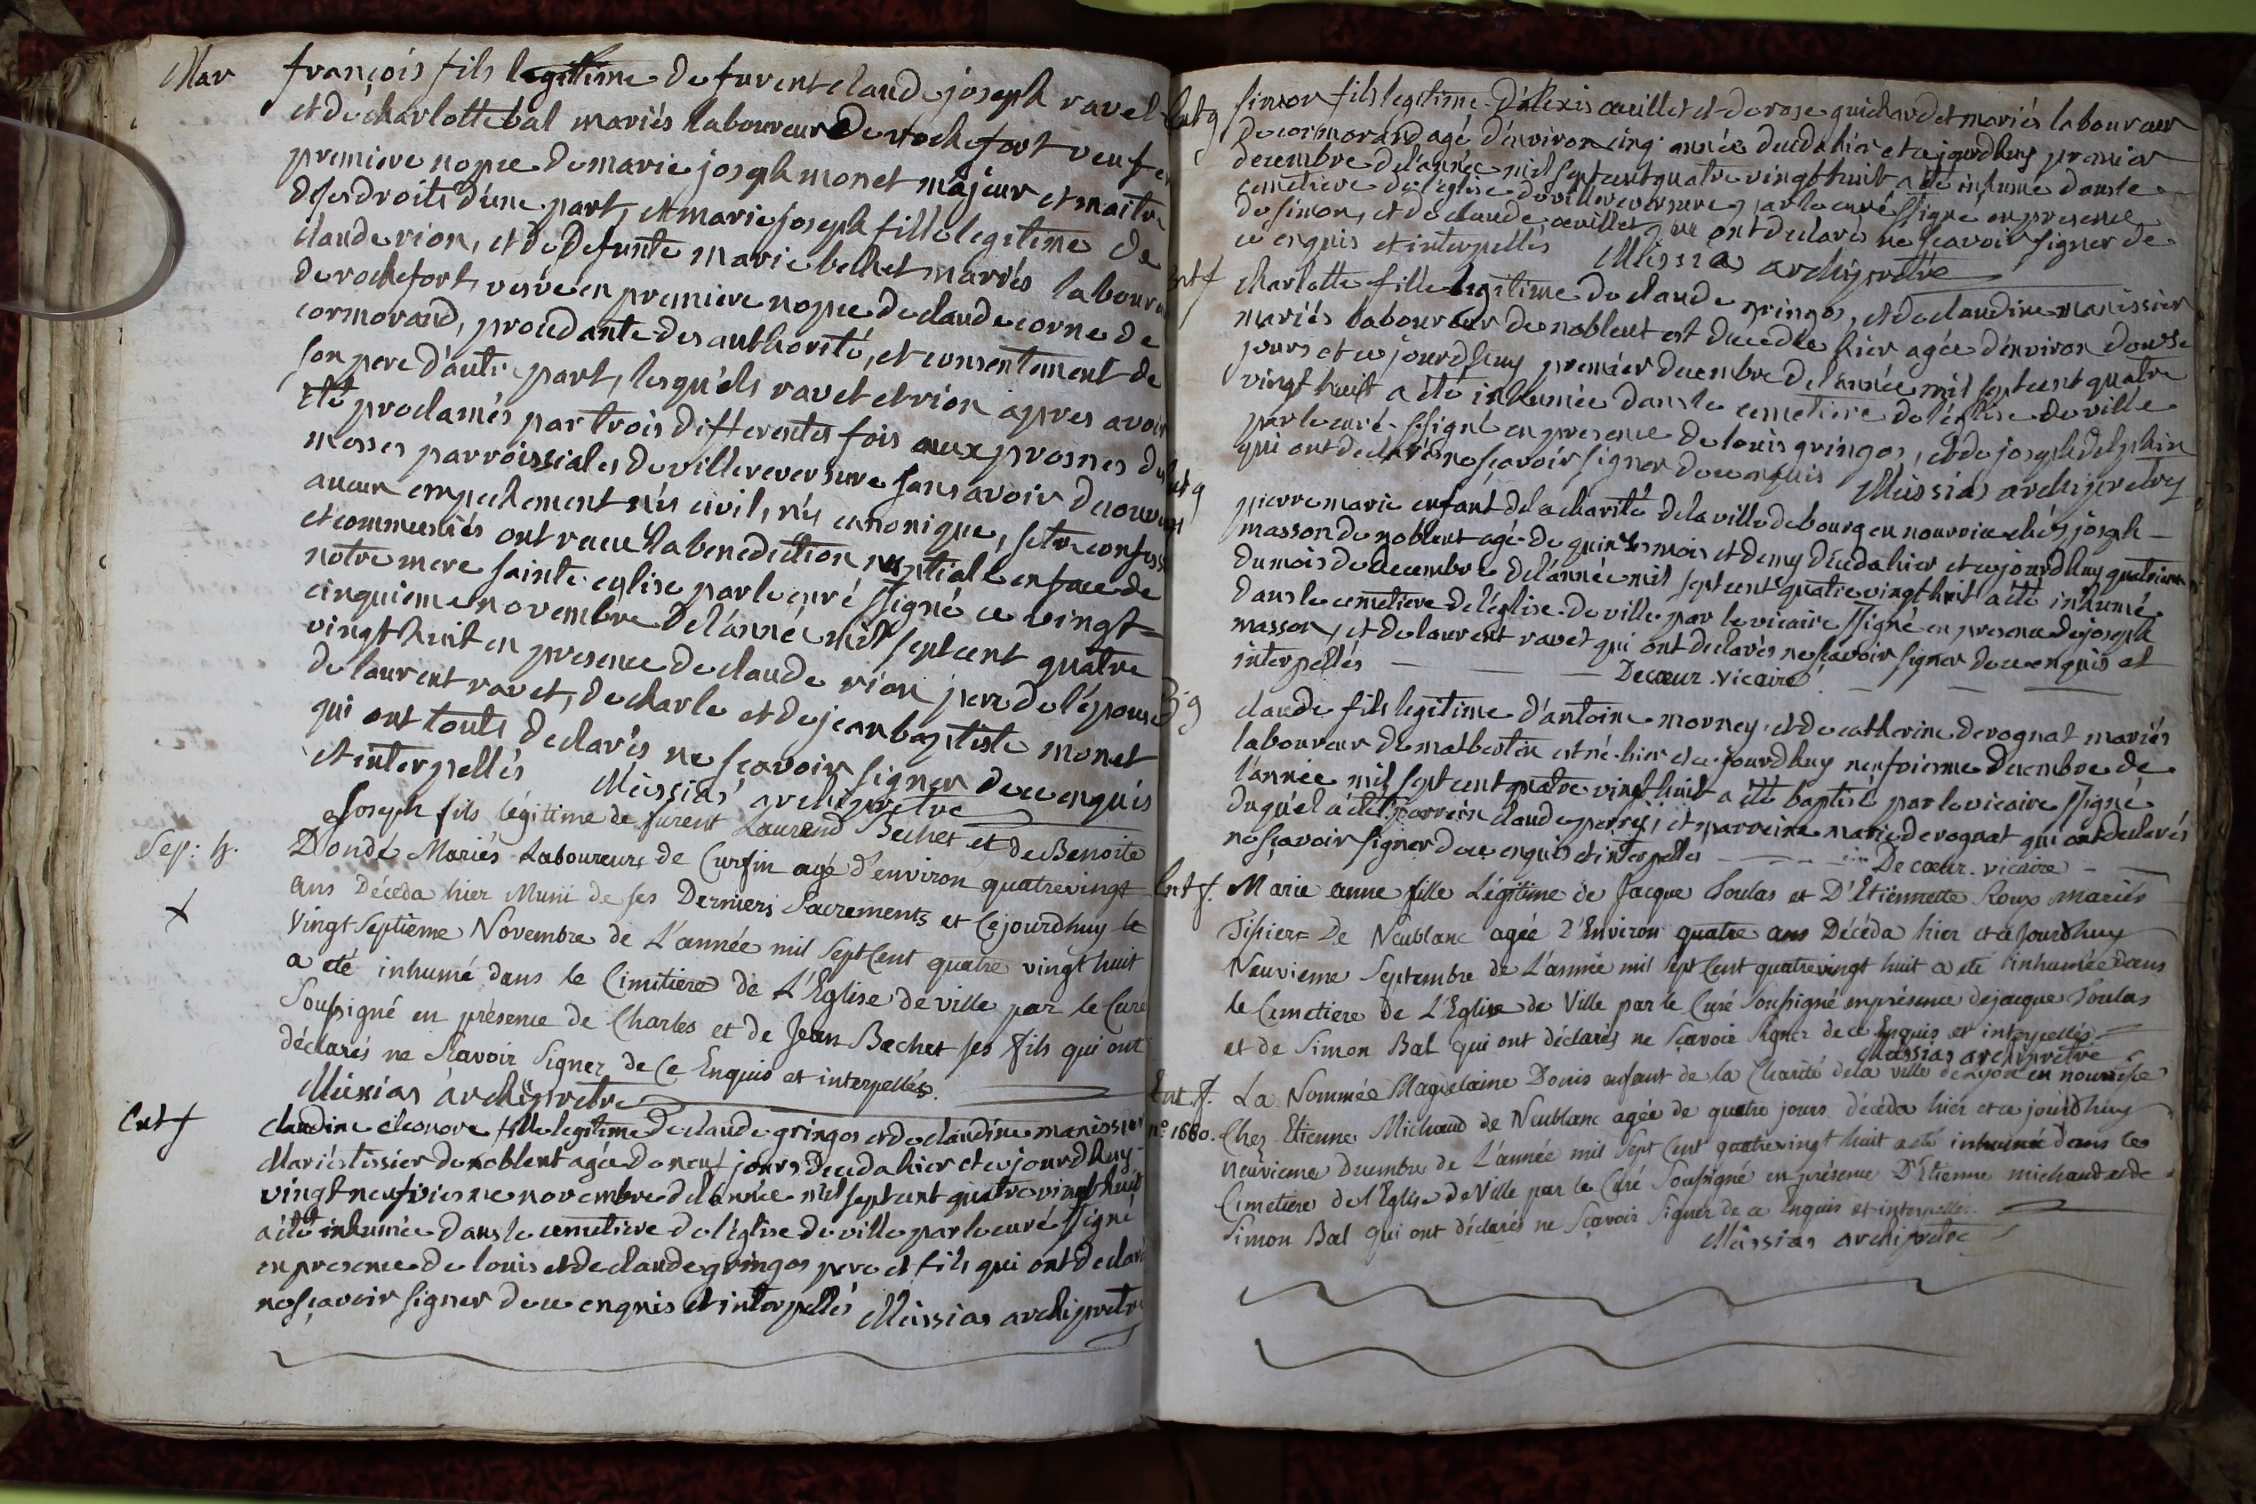 Mar
françois fils legitime de furent claude joseph ravet
et de charlotte bal mariés laboureur de rochefort veuf en
premiere nopce de marie joseph monet majeur et maitre
de ses droits d'une part, et marie joseph fille legitime de
claude rion, et de defunte marie bechet mariés laboureur
de rochefort, veuve en premiere nopce de claude corne de
cormorand, procedante des authorité, et consentement de
son pere d'autre part, lesquels ravet et rion apres avoir
été proclamés par trois differentes fois aux prosnes des
messes parroissiales de villereversure sans avoir decouvert
aucun empechement n'y civil, n'y canonique, s'etre confessés
et communiés ont recue la benediction nuptiale en face de
notre mere sainte eglise par le curé ssigné ce vingt=
cinquieme novembre de l'année mil sept cent quatre
vingt huit en presence de claude rion pere de l'épouse
de laurent ravet, de charle et de jean baptiste monet
qui ont touts declarés ne sçavoir signer de ce enquis
et interpellés Missias archiprêtre
Sep: h.
Joseph fils légitime de furent Laurend Bechet et de Benoite
Dondé Mariés Laboureurs de Curfin agé d'environ quatrevingt
ans Décéda hier Muni de ses Derniers Sacrements et Cejourdhuy le
Vingt Septieme Novembre de L'année mil Sept Cent quatre vingt huit
a eté inhumé dans le Cimitiere de L'Eglise de ville par le Curé
Soussigné en présence de Charles et de Jean Bechet ses fils qui ont
déclarés ne Scavoir Signer de Ce Enquis et interpellés.
Missias archiprêtre
Ent f
claudine eleonore fille legitime de claude gringos et de claudine manissier
Mariés tissier de noblent agée de neuf jours deceda hier et cejourdhuy
vingt neufvieme novembre de l'année mil sept cent quatre vingt huit
a été inhumée dans le cemetiere de l'église de ville par le curé ssigné
en presence de louis et de claude gringos pere et fils qui ont declaré
ne sçavoir signer de ce enquis et interpellés Missias archiprêtre
Ent g
simon fils legitime d'alexis œuillet et de rose guichardet mariés laboureur
de cormorand agé d'environ cinq année deceda hier et cejourdhuy premier
decembre de l'année mil sept cent quatre vingt huit a été inhumé dans le
cemetiere de l'église de villereversure par le curé ssigné en presence
de simon, et de claude œuillet qui ont declarés ne sçavoir signer de
ce enquis et interpellés Missias archiprêtre
ent f
charlotte fille legitime de claude gringos, et de claudine manissier
mariés laboureur de noblent est decedée hier agée d'environ douse
jours et ce jourdhuy premier decembre de l'année mil sept cent quatre
vingt huit a été inhumée dans le cemetiere de l'église de ville
par le curé ssigné en presence de louis gringos, et de joseph delphin
qui ont declaré ne sçavoir signer de ce enquis Missias archiprêtre
ent g
pierre marie enfant de la charité de la ville de bourg en nourrice chéz joseph
masson de noblent agé de quinse mois et demy déceda hier et cejourdhuy quatrieme
du mois de decembre de l'année mil sept cent quatre vingt huit a été inhumé
dans le cemetiere de l'église de ville par le vicaire ssigné en presence de joseph
masson, et de laurent ravet qui ont declarés ne sçavoir signer de ce enquis et
interpellés Decœur vicaire
B g
claude fils legitime d'antoine morney et de catherine devognat mariés
laboureur de matbestin est né hier et ce jourdhuy neufvieme decembre de
l'année mil sept cent quatre vingt huit a été baptisé par le vicaire ssigné
duquel a été parrein claude perrej, et marreine marie devognat qui ont declarés
ne sçavoir signer de ce enquis et interpellés Decœur vicaire
Ent f.
Marie anne fille Légitime de Jacque Soulas et D'Etiennette Roux mariés
Tissiers De Neublanc agée D'Environ quatre ans Décéda hier et ce Jourdhuy
Neuvieme Septembre de L'année mil sept Cent quatre vingt huit a été inhumée dans
le Cemetiere de L'Eglise de Ville par le Curé Soussigné en présence de jacque Soulas
et de Simon Bal qui ont déclarés ne Sçavoir Signer de ce Enquis et interpellés
Missias archiprêtre
Ent. f.
n° 1660.
La Nommée Magdelaine Donis enfant de la Charité de la ville de Lyon en nourrice
Chez Etienne Michaud de Neublanc agée de quatre jours décéda hier et ce jourdhuy
neuvieme Decembre de L'année mil Sept Cent quatre vingt huit a été inhumée dans le
Cimetiere de l'Eglise de Ville par le Curé Soussigné en présence D'Etienne michaud et de
Simon Bal qui ont déclarés ne Sçavoir Signer de ce Enquis et interpellés
Missias archiprêtre